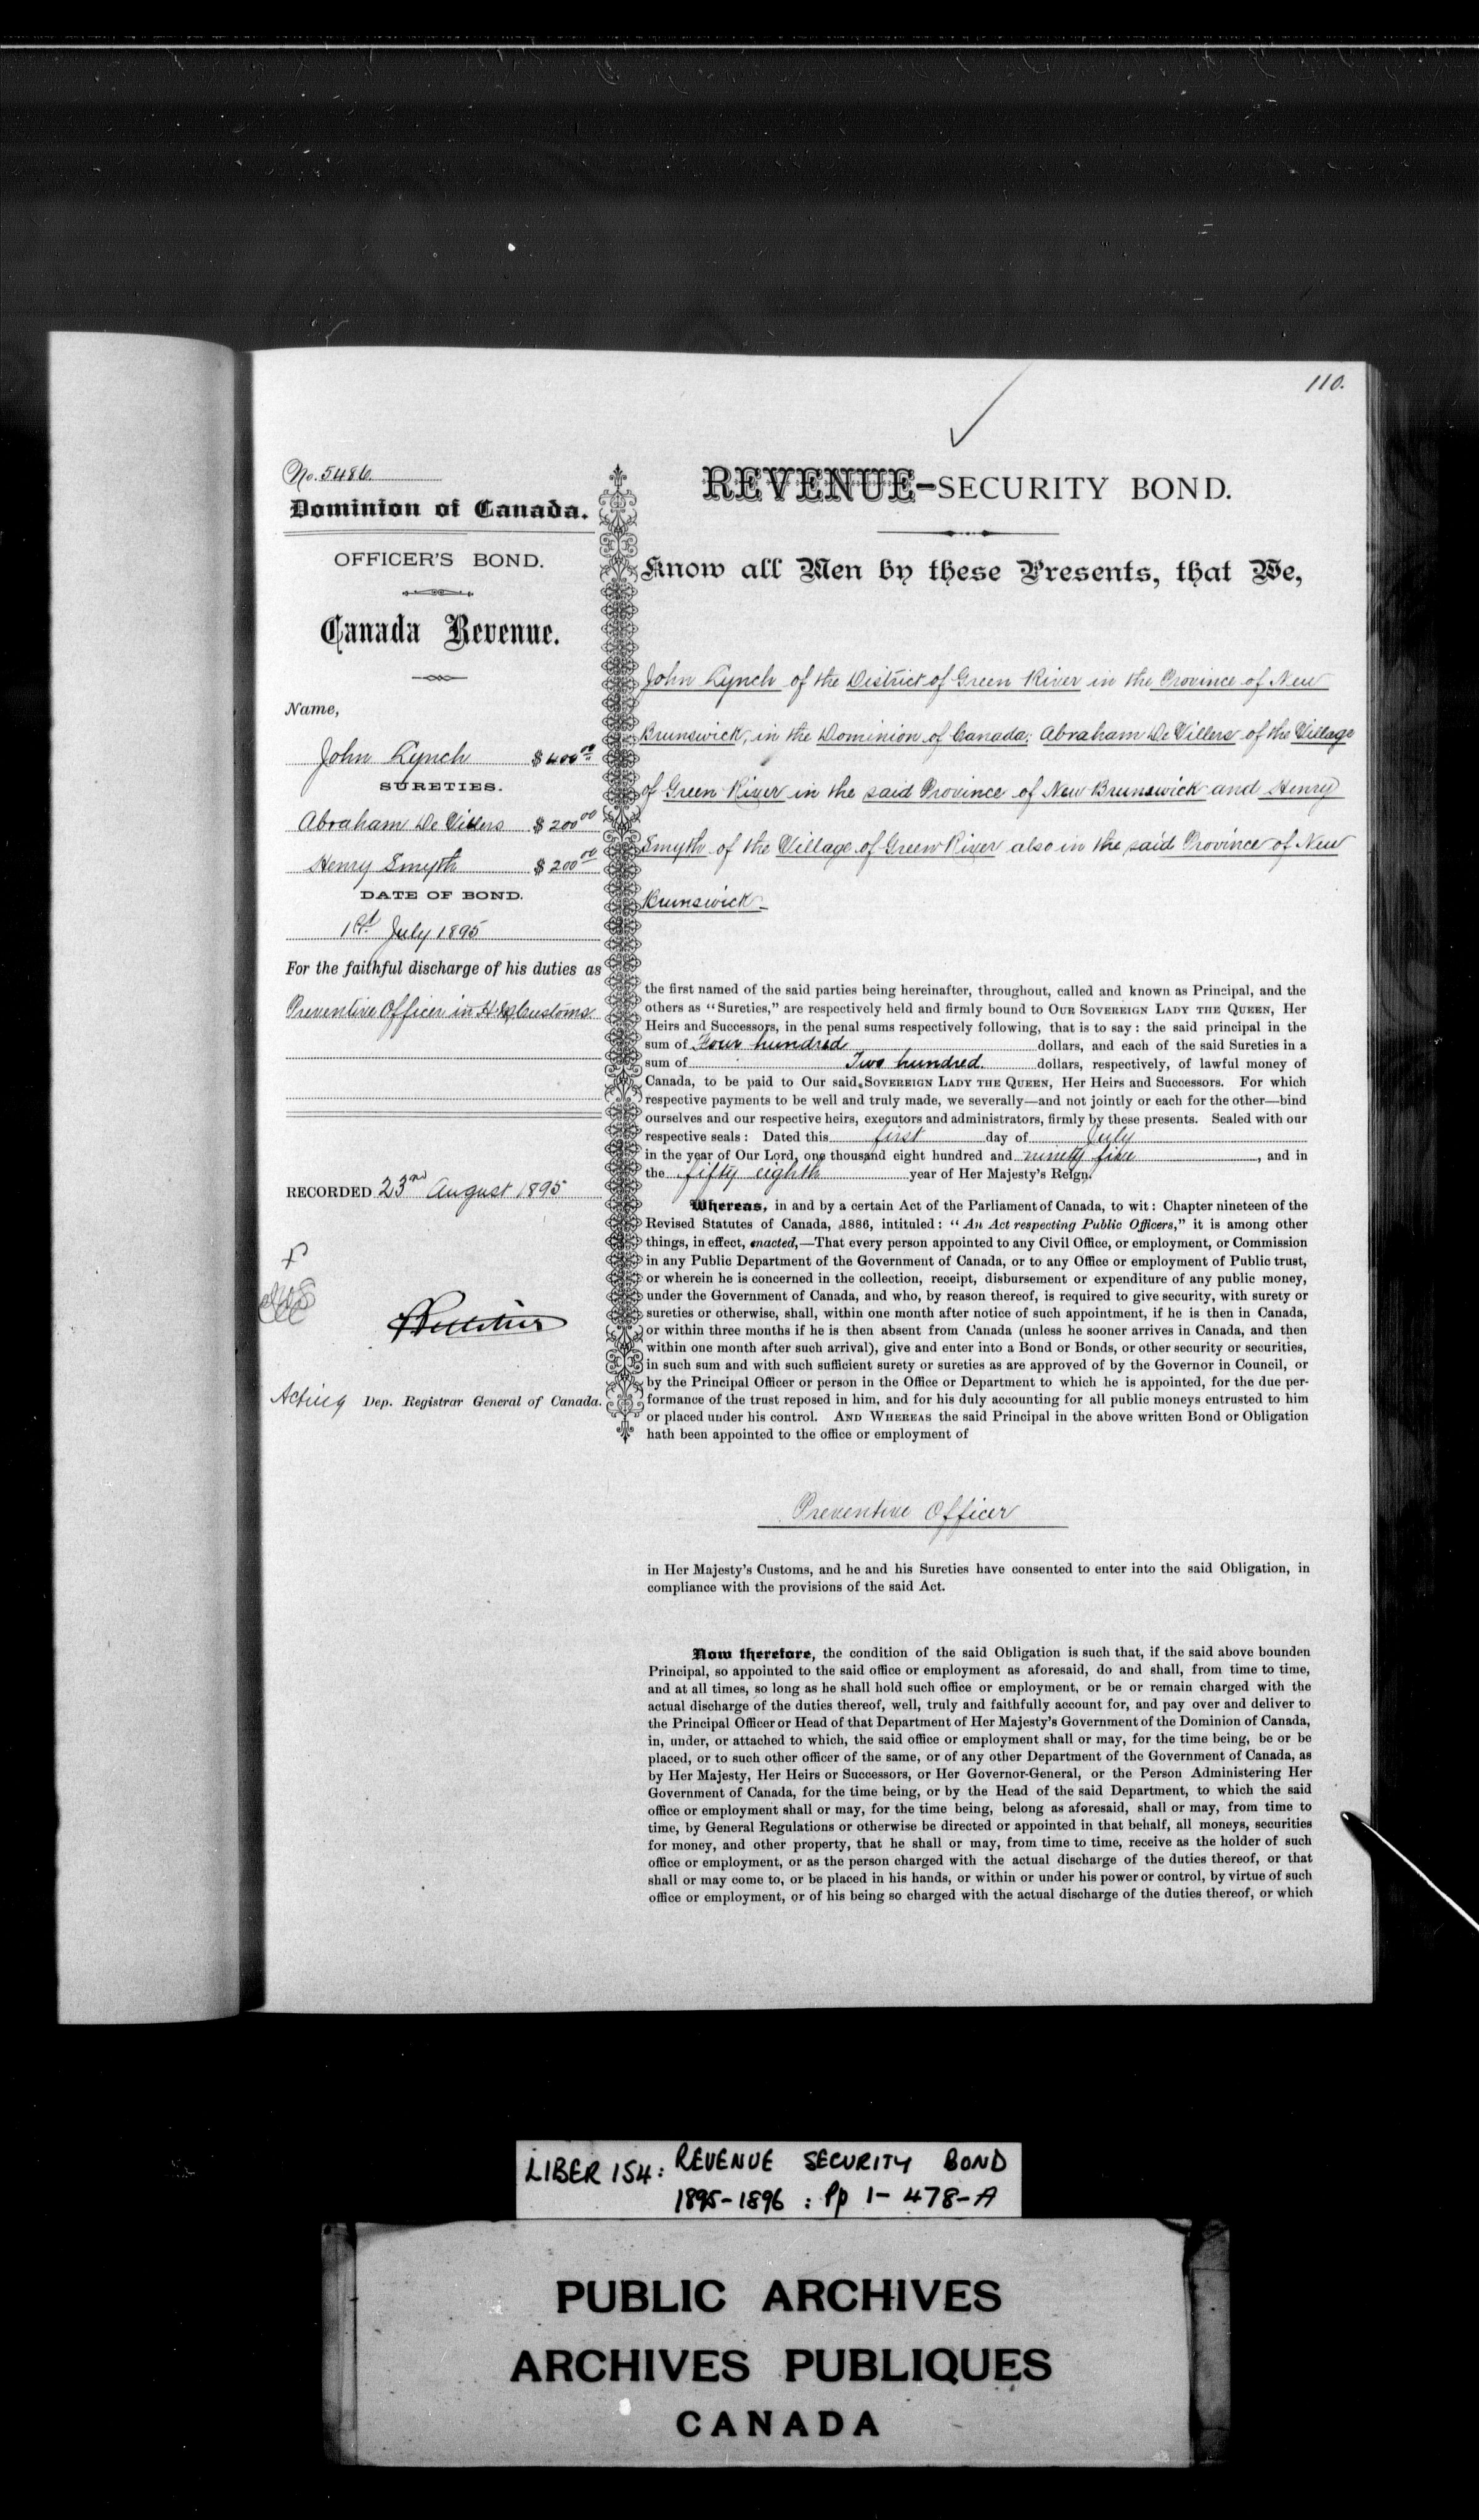 110.
No. 5486.
Dominion of Canada.
OFFICER'S BOND.
Canada Revenue.
Name,
John Lynch $400.00
SURETIES.
Abraham De Villers $200.00
Henry Smyth $200.00
DATE OF BOND.
1st July 1895
For the faithful discharge of his duties as
Preventive Officer in H.M. Customs.
RECORDED 23rd August 1895
Acting Dep. Registrar General of Canada.
REVENUE-SECURITY BOND.
Know all Men by these Presents, that We,
John Lynch of the District of Green River in the Province of New
Brunswick, in the Dominion of Canada; Abraham De Villers of the Village
of Green River in the said Province of New Brunswick and Henry
Smyth of the Village of Green River also in the said Province of New
Brunswick
the first named of the said parties being hereinafter, throughout, called and known as Principal, and the
others as "Sureties," are respectively held and firmly bound to OUR SOVEREIGN LADY THE QUEEN, Her
Heirs and Successors, in the penal sums respectively following, that is to say: the said principal in the
sum of Four hundred dollars, and each of the said Sureties in a
sum of Two hundred dollars, respectively, of lawful money of
Canada, to be paid to Our said SOVEREIGN LADY THE QUEEN, Her Heirs and Successors. For which
respective payments to be well and truly made, we severally—and not jointly or each for the other—bind
ourselves and our respective heirs, executors and administrators, firmly by these presents. Sealed with our
respective seals: Dated this first day of July
in the year of Our Lord, one thousand eight hundred and ninety five, and in
the fifty eighth year of Her Majesty's Reign.
Whereas, in and by a certain Act of the Parliament of Canada, to wit: Chapter nineteen of the
Revised Statutes of Canada, 1886, intituled: "An Act respecting Public Officers," it is among other
things, in effect, enacted,—That every person appointed to any Civil Office, or employment, or Commission
in any Public Department of the Government of Canada, or to any Office or employment of Public trust,
or wherein he is concerned in the collection, receipt, disbursement or expenditure of any public money,
under the Government of Canada, and who, by reason thereof, is required to give security, with surety or
sureties or otherwise, shall, within one month after notice of such appointment, if he is then in Canada,
or within three months if he is then absent from Canada (unless he sooner arrives in Canada, and then
within one month after such arrival), give and enter into a Bond or Bonds, or other security or securities,
in such sum and with such sufficient surety or sureties as are approved of by the Governor in Council, or
by the Principal Officer or person in the Office or Department to which he is appointed, for the due per-
formance of the trust reposed in him, and for his duly accounting for all public moneys entrusted to him
or placed under his control. AND WHEREAS the said Principal in the above written Bond or Obligation
hath been appointed to the office or employment of
Preventive Officer
in Her Majesty's Customs, and he and his Sureties have consented to enter into the said Obligation, in
compliance with the provisions of the said Act.
Now therefore, the condition of the said Obligation is such that, if the said above bounden
Principal, so appointed to the said office or employment as aforesaid, do and shall, from time to time,
and at all times, so long as he shall hold such office or employment, or be or remain charged with the
actual discharge of the duties thereof, well, truly and faithfully account for, and pay over and deliver to
the Principal Officer or Head of that Department of Her Majesty's Government of the Dominion of Canada,
in, under, or attached to which, the said office or employment shall or may, for the time being, be or be
placed, or to such other officer of the same, or of any other Department of the Government of Canada, as
by Her Majesty, Her Heirs or Successors, or Her Governor-General, or the Person Administering Her
Government of Canada, for the time being, or by the Head of the said Department, to which the said
office or employment shall or may, for the time being, belong as aforesaid, shall or may, from time to
time, by General Regulations or otherwise be directed or appointed in that behalf, all moneys, securities
for money, and other property, that he shall or may, from time to time, receive as the holder of such
office or employment, or as the person charged with the actual discharge of the duties thereof, or that
shall or may come to, or be placed in his hands, or within or under his power or control, by virtue of such
office or employment, or of his being so charged with the actual discharge of the duties thereof, or which
LIBER 154: REVENUE SECURITY BOND
1895-1896 : Pp 1-478-A
PUBLIC ARCHIVES
ARCHIVES PUBLIQUES
CANADA